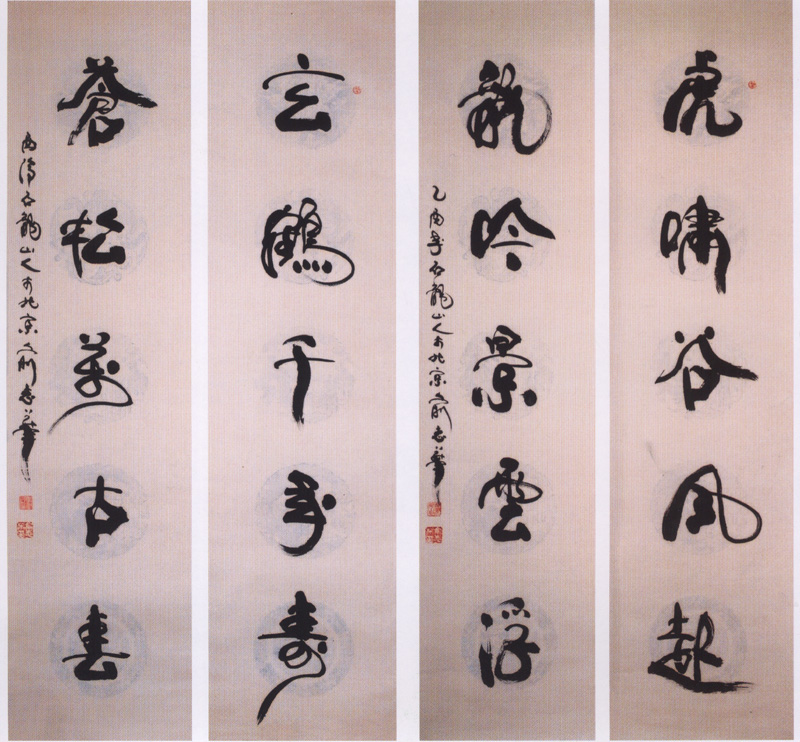 虎嘯谷風起
龍吟景雲浮
乙酉年石龍山人于北京俞
玄鶴千年壽
蒼松萬古春
石龍山人于北京俞